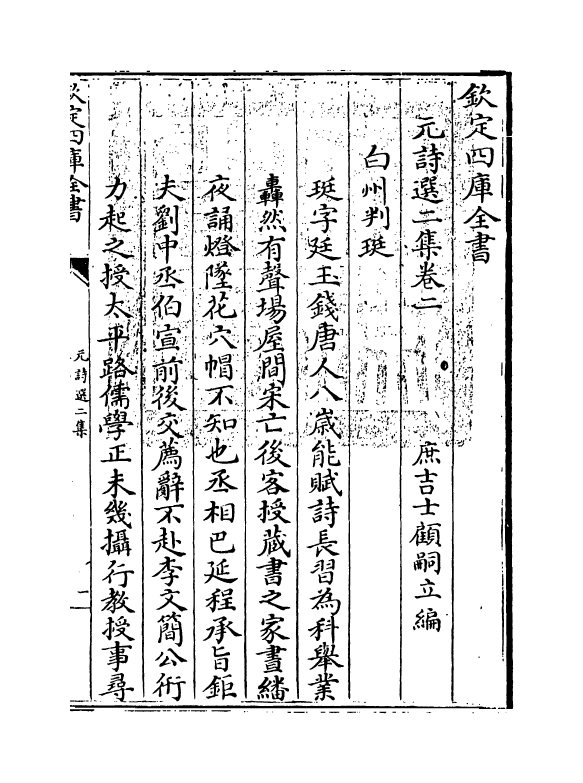 欽定四庫全書
元詩選二集卷二
庶吉士顧嗣立編
白州判珽
珽字廷玉錢唐人八歲能賦詩長習為科舉業
轟然有聲場屋間宋亡後客授藏書之家晝繙
夜誦燈墜花穴帽不知也丞相巴延程承旨鉅
夫劉中丞伯宣前後交薦辭不赴李文簡公衎
力起之授太平路儒學正未幾攝行教授事尋
欽定四庫全書
元詩選二集
一